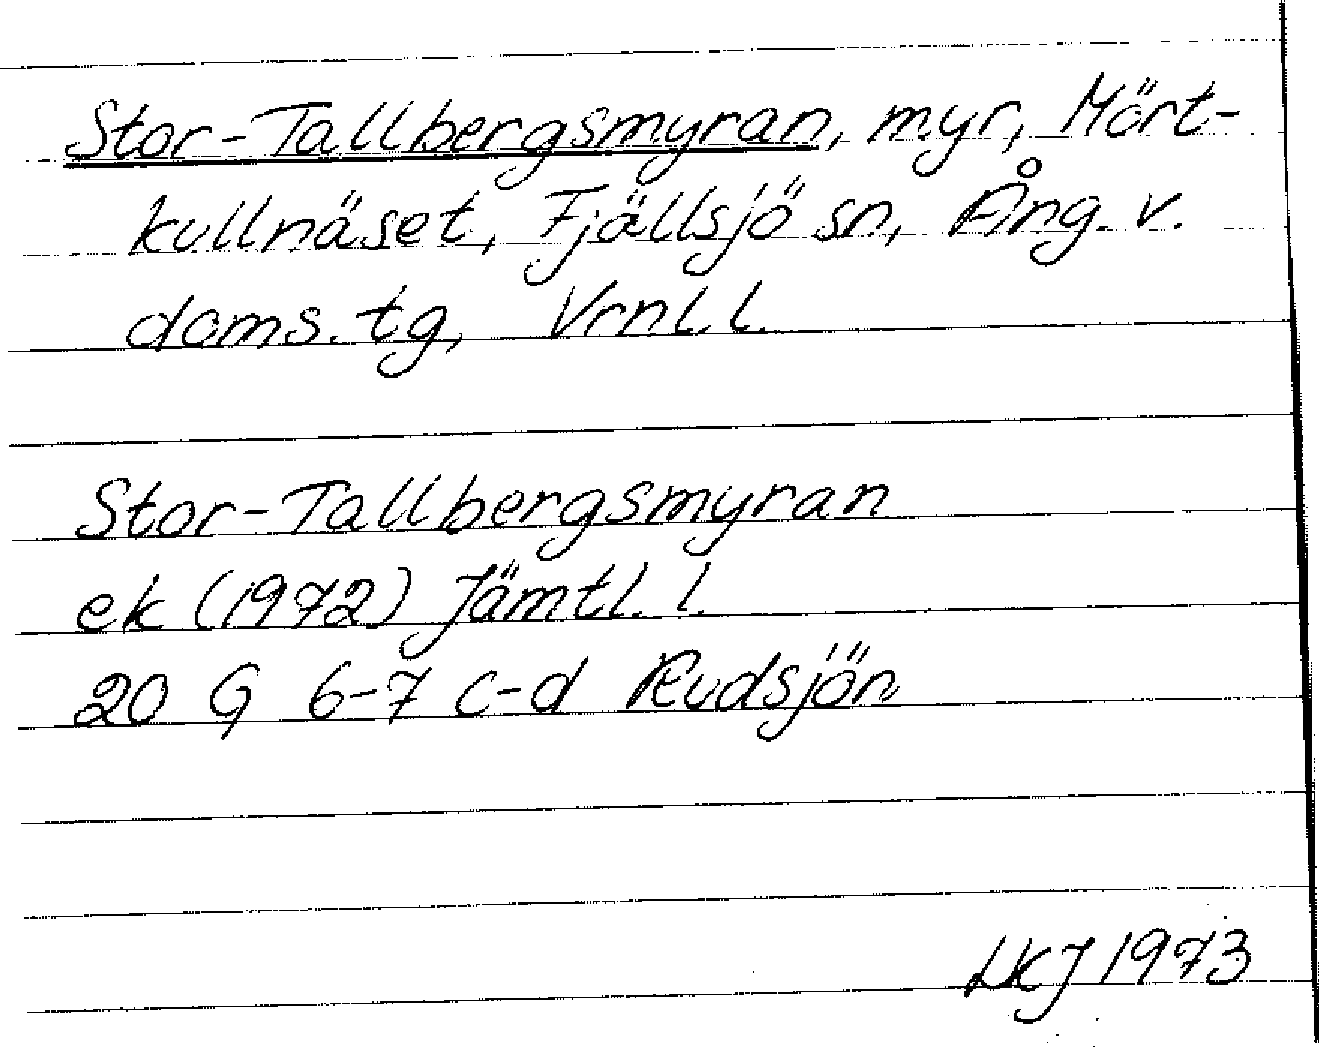 Stor-Tallbergsmyran, myr, Mört-
kullnäset, Fjällsjö sn, Ång. v.
doms. tg, Vrnl. l.
Stor-Tallbergsmyran
ek (1972) Jämtl. l.
20 G 6-7 c-d Rudsjön
LKJ 1973